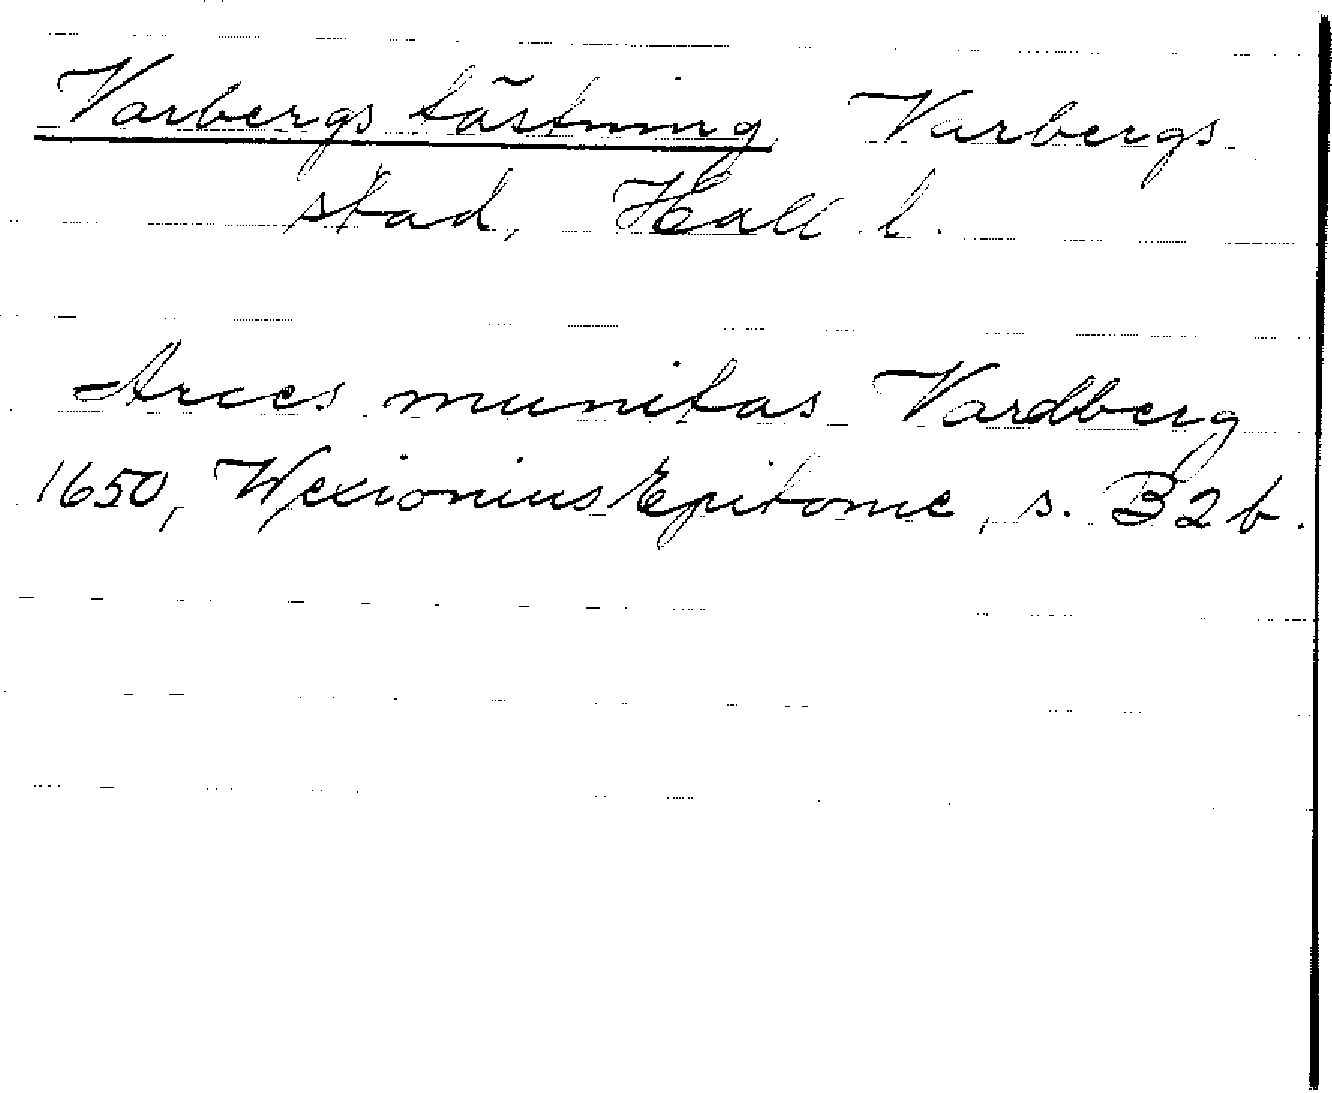 Varbergs fästning Varbergs
stad, Hall l.
Arces munitas Vardberg
1650, Wexionius Epitome, s. B2b.